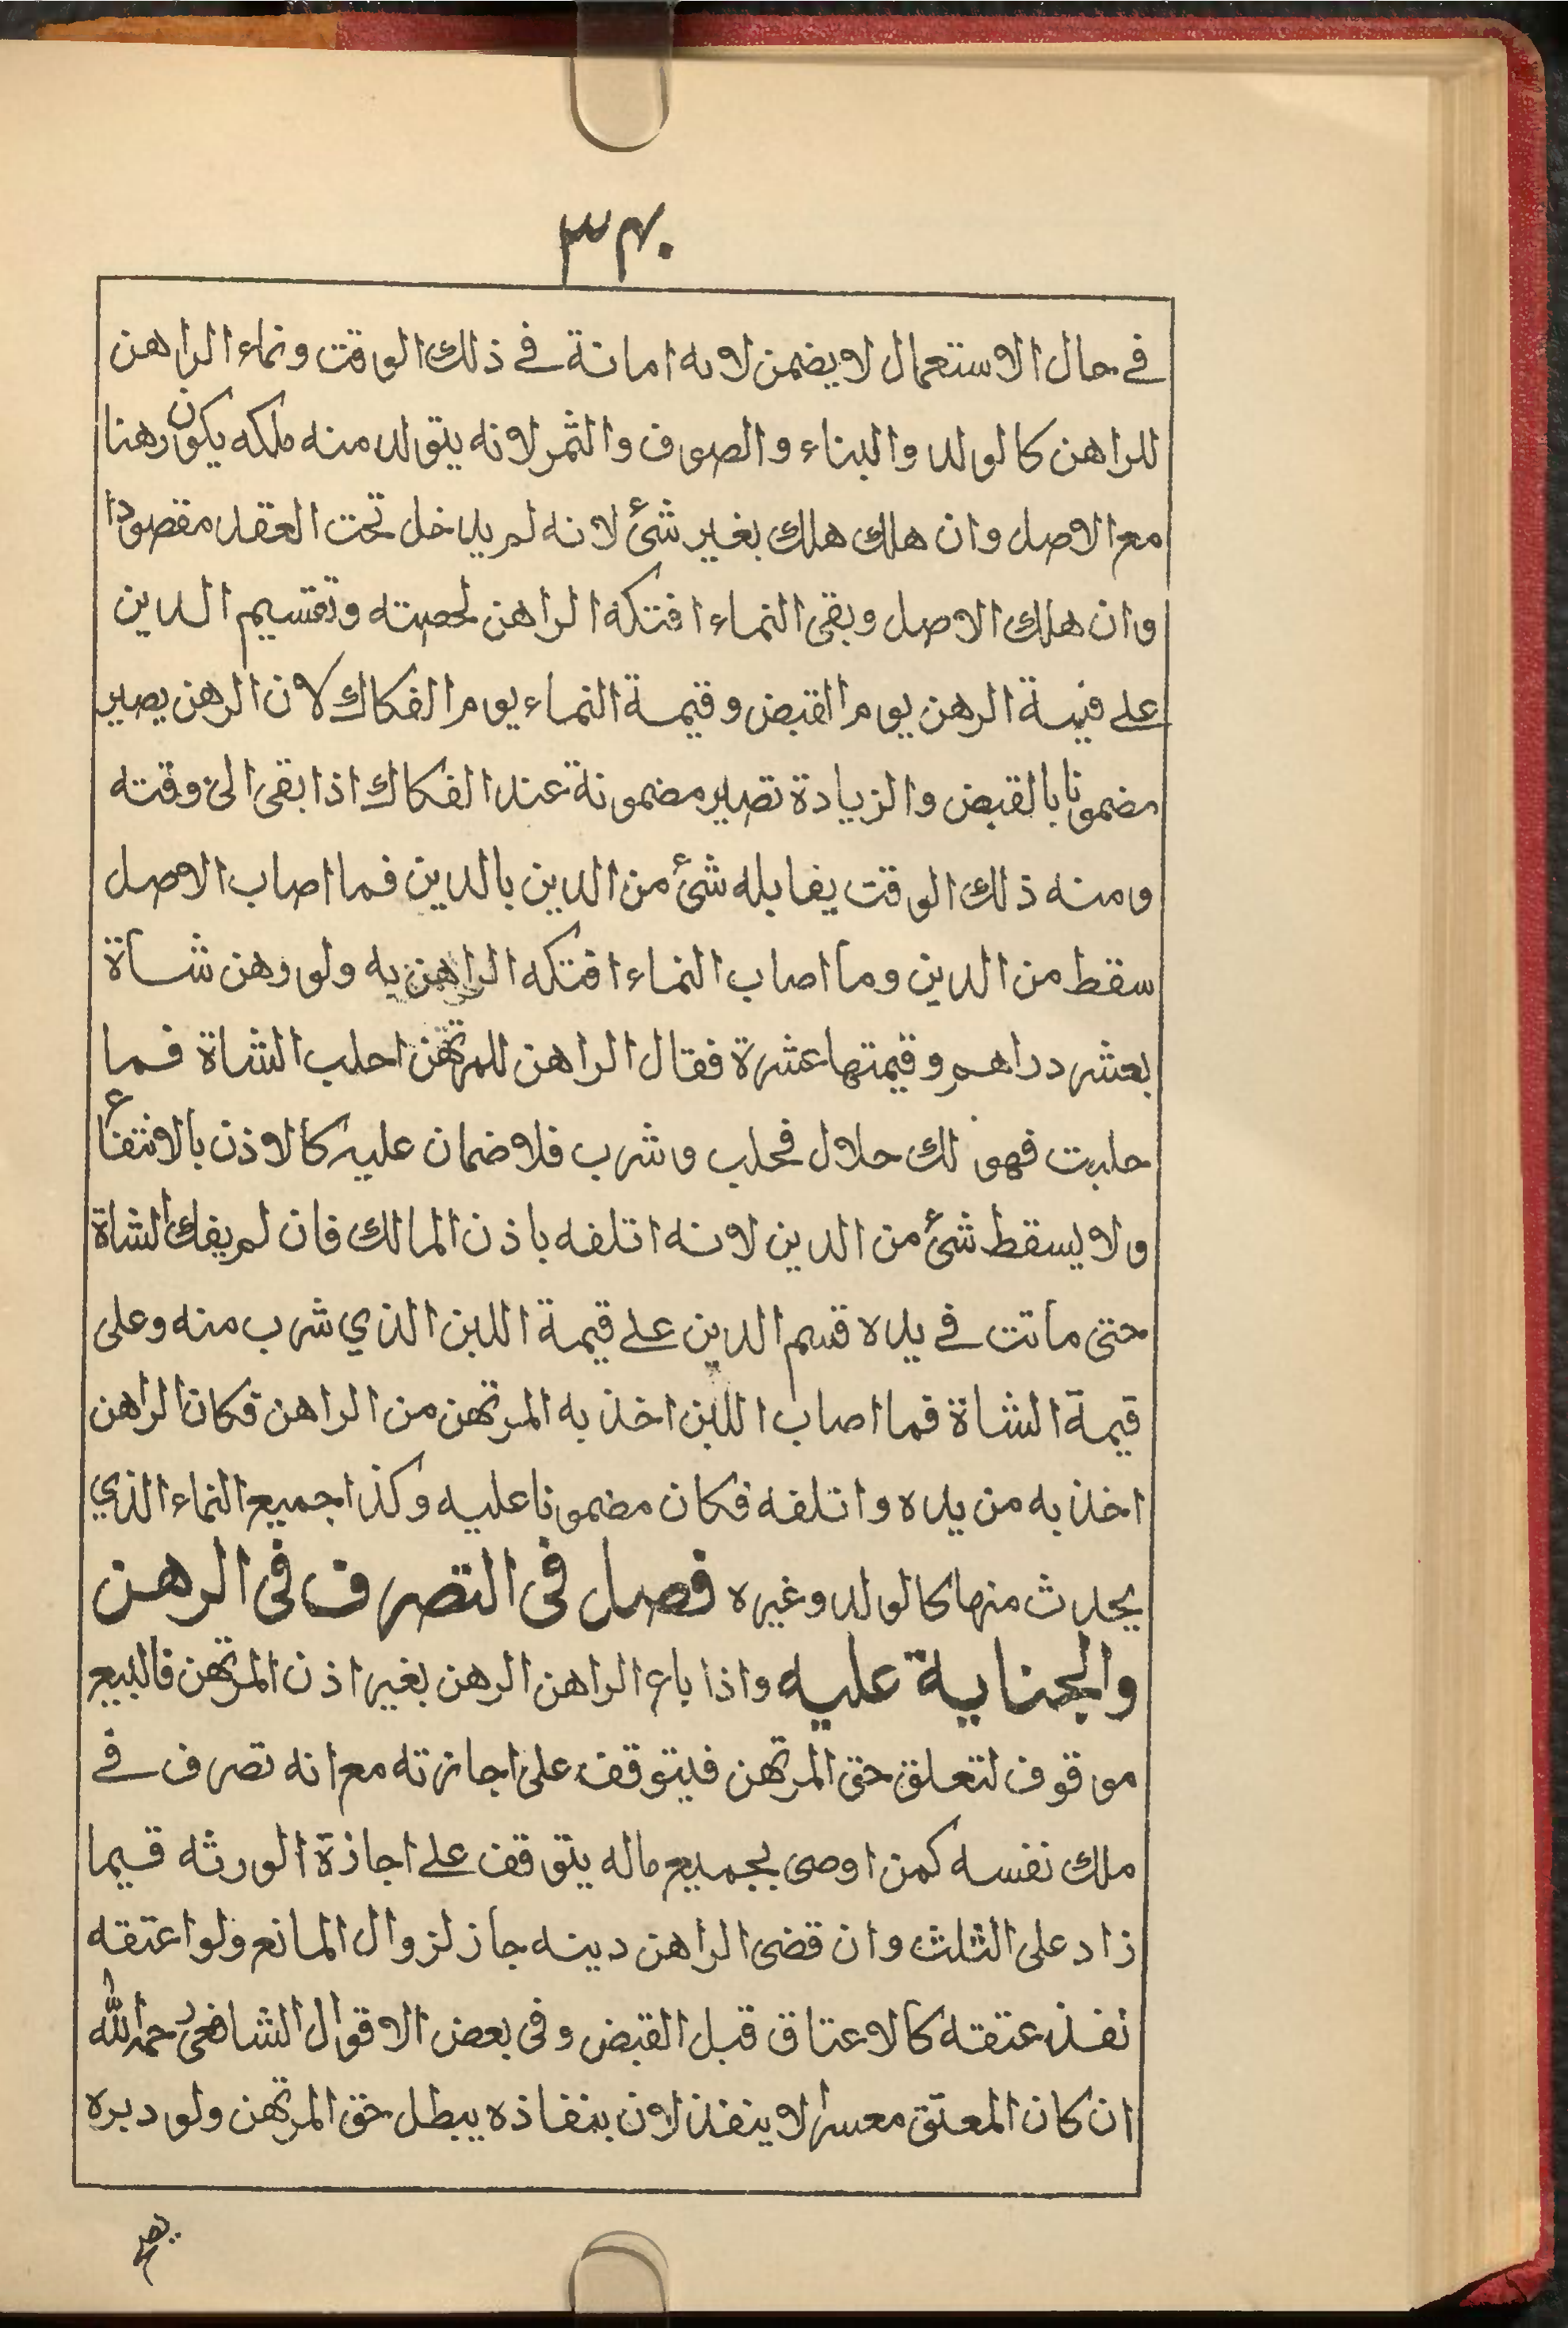 في حال الاستعمال لا يضمن لانه امانة في ذلك الوقت ونماء الراهن
للراهن كالولد والبناء والصوف والثمر لانه يتولد منه ملكه يكون رهنا
مع الاصل وان هلك هلك بغير شئ لانه لم يدخل تحت العقد مقصودا
وان هلك الاصل وبقى النماء افتكه الراهن لحصته وتقسيم الدين
على قيمة الرهن يوم القبض وقيمة النماء يوم الفكاك لان الرهن يصير
مضمونا بالقبض والزيادة تصير مضمونة عند الفكاك اذا بقى الى وقته
ومنه ذلك الوقت يقابله شئ من الدين بالدين فما اصاب الاصل
سقط من الدين وما اصاب النماء افتكه الراهن به ولو رهن شاة
بعشر دراهم وقيمتها عشرة فقال الراهن للمرتهن احلب الشاة فما
حلبت فهو لك حلال فحلب وشرب فلا ضمان عليه كالاذن بالانتفاع
ولا يسقط شئ من الدين لانه اتلفه باذن المالك فان لم يفك الشاة
حتى ماتت في يده قسم الدين على قيمة اللبن الذي شرب منه وعلى
قيمة الشاة فما اصاب اللبن اخذ به المرتهن من الراهن فكان الراهن
اخذ به من يده واتلفه فكان مضمونا عليه وكذا جميع النماء الذي
يحدث منها كالولد وغيره فصل فى التصرف فى الرهن
والجناية عليه واذا باع الراهن الرهن بغير اذن المرتهن فالبيع
موقوف لتعلق حق المرتهن فيتوقف على اجازته مع انه تصرف في
ملك نفسه كمن اوصى بجميع ماله يتوقف على اجازة الورثه فيما
زاد على الثلث وان قضى الراهن دينه جاز لزوال المانع ولو اعتقه
نفذ عتقه كالاعتاق قبل القبض وفى بعض الاقوال الشافعى رحمه الله
ان كان المعتق معسرا لا ينفذ لان بنفاذه يبطل حق المرتهن ولو دبره